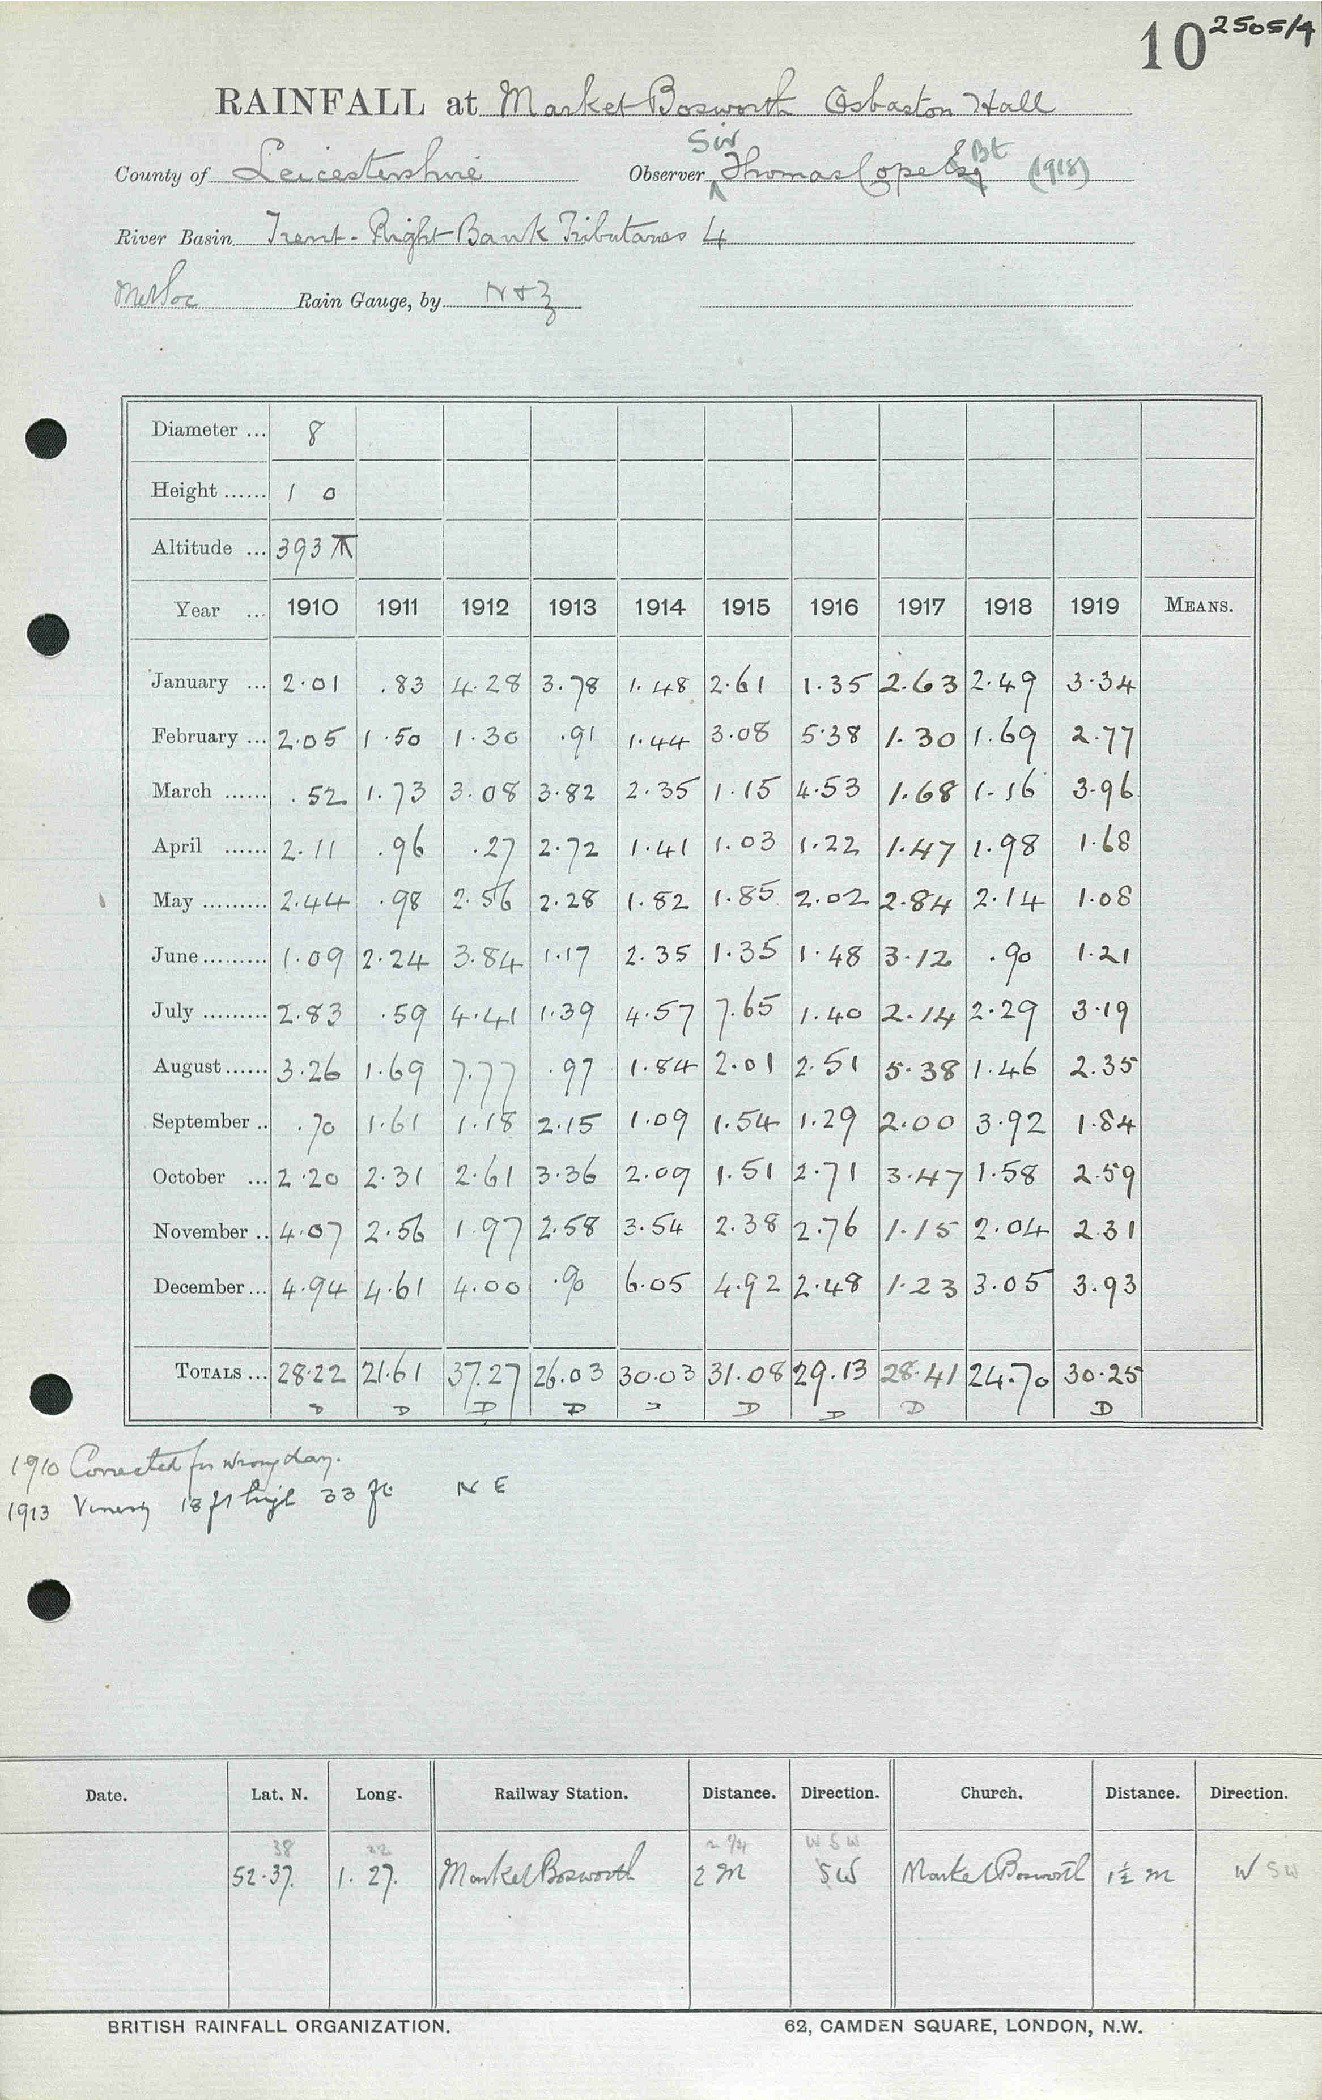 10 2505/4
RAINFALL at Market Bosworth Osbaston Hall
County of Leicestershire Observer Sir Thomas Cope Esq Bt (1918)
River Basin Trent - Right Bank Tributaries 4
Met Soc Rain Gauge, by N & Z
Diameter ... 8
Height ...... 1 0
Altitude ... 393
Year ... 1910 1911 1912 1913 1914 1915 1916 1917 1918 1919 MEANS.
January ... 2.01 .83 4.28 3.78 1.48 2.61 1.35 2.63 2.49 3.34
February ... 2.05 1.50 1.30 .91 1.44 3.08 5.38 1.30 1.69 2.77
March ...... .52 1.73 3.08 3.82 2.35 1.15 4.53 1.68 1.16 3.96
April ...... 2.11 .96 .27 2.72 1.41 1.03 1.22 1.47 1.98 1.68
May ......... 2.44 .98 2.56 2.28 1.82 1.85 2.02 2.84 2.14 1.08
June ......... 1.09 2.24 3.84 1.17 2.35 1.35 1.48 3.12 .90 1.21
July ......... 2.83 .59 4.41 1.39 4.57 7.65 1.40 2.14 2.29 3.19
August ...... 3.26 1.69 7.77 .97 1.84 2.01 2.51 5.38 1.46 2.35
September .. .70 1.61 1.18 2.15 1.09 1.54 1.29 2.00 3.92 1.84
October ... 2.20 2.31 2.61 3.36 2.09 1.51 2.71 3.47 1.58 2.59
November .. 4.07 2.56 1.97 2.58 3.54 2.38 2.76 1.15 2.04 2.31
December ... 4.94 4.61 4.00 .90 6.05 4.92 2.48 1.23 3.05 3.93
TOTALS ... 28.22 21.61 37.27 26.03 30.03 31.08 29.13 28.41 24.70 30.25
D D D D D D D D D
1910 Corrected for wrong day.
1913 Vinery 18 ft high 33 ft N E
Date. Lat. N. Long. Railway Station. Distance. Direction. Church. Distance. Direction.
38 22 2 1/4 W S W
52.37. 1. 27. Market Bosworth 2 m SW Market Bosworth 1½ m W S W
BRITISH RAINFALL ORGANIZATION. 62, CAMDEN SQUARE, LONDON, N.W.